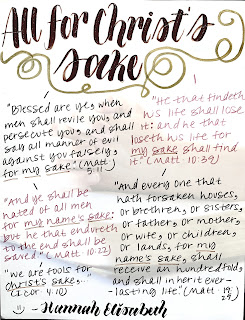 All for Christ's
sake
"Blessed are ye, when
men shall revile you, and
persecute you, and shall
say all manner of evil
against you falsely,
for my sake" (Matt.
5:11
"He that findeth
his life shall lose
it: and he that
loseth his life for
my sake shall find
it." (Matt. 10:39)
"And ye shall be
hated of all men
for my name's sake:
but he that endureth
to the end shall be
saved." (Matt. 10:22)
"And every one that
hath forsaken houses,
or brethren, or sisters,
or father, or mother,
or wife, or children,
or lands, for my
name's sake, shall
receive an hundredfold,
and shall inherit ever-
-lasting life." (Matt. 19:
29)
"We are fools for
Christ's sake,...
(1 Cor 4:10)
- Hannah Elisabeth